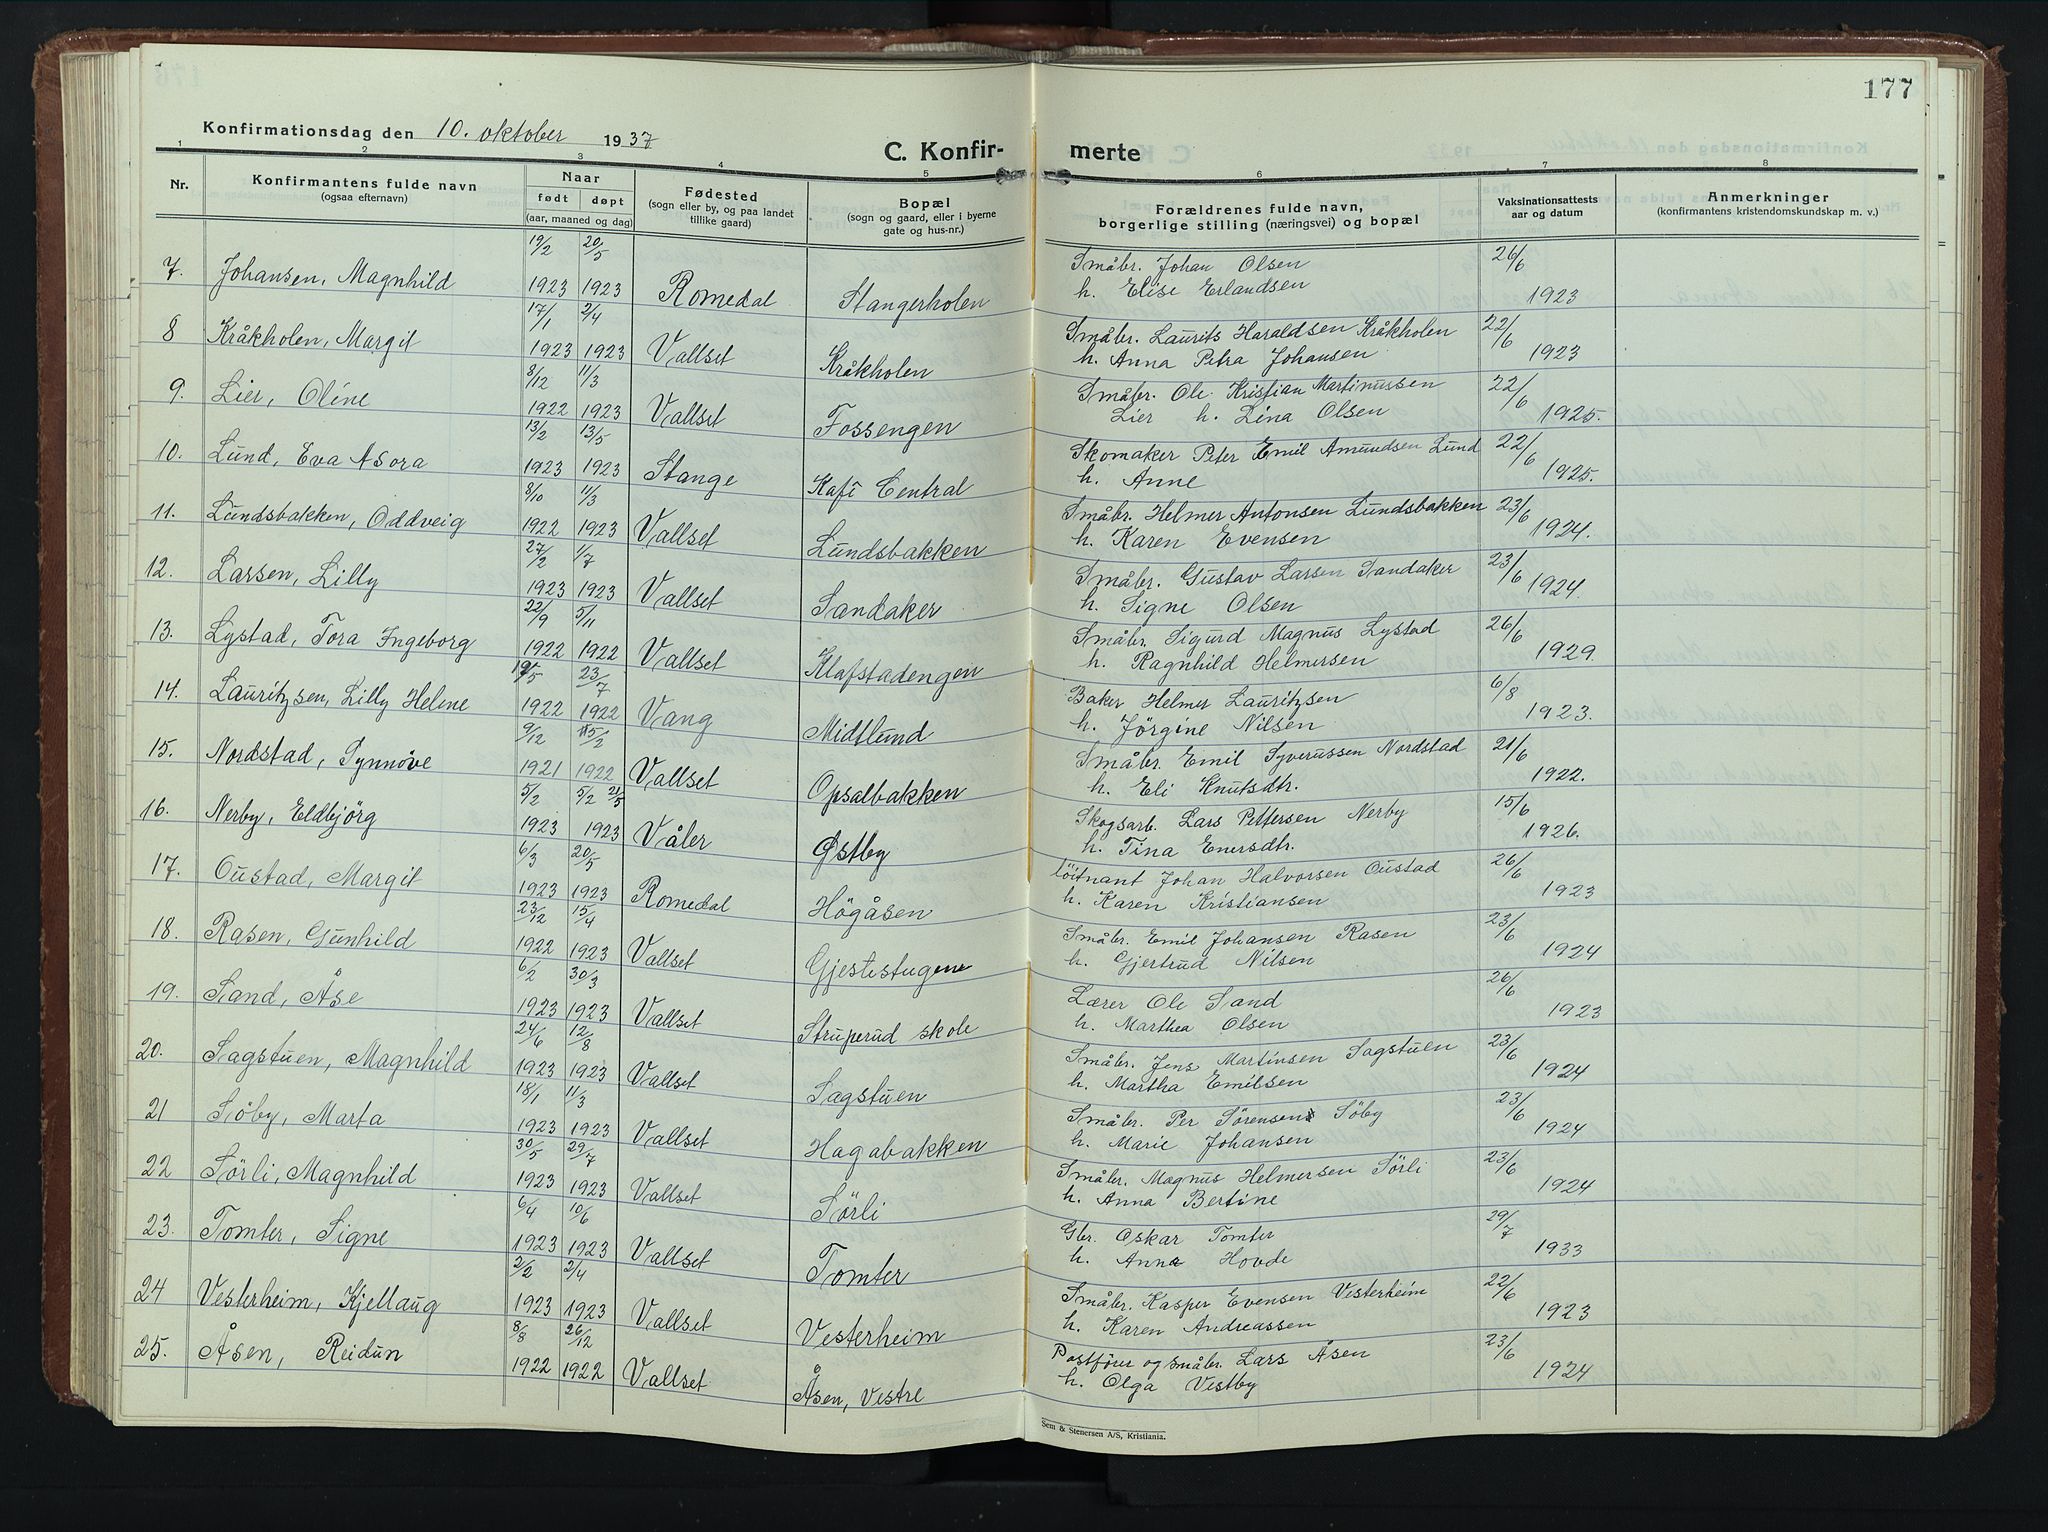 177
Konfirmationsdag den 10. oktober 1937
C. Konfir- merte
1 2 3 4 5 6 7 8
Nr. Konfirmantens fulde navn (ogsaa efternavn) Naar født døpt (aar, maaned og dag) Fødested (sogn eller by, og paa landet tillike gaard) Bopæl (sogn og gaard, eller i byerne gate og hus-nr.) Forældrenes fulde navn, borgerlige stilling (næringsvei) og bopæl Vaksinationsattests aar og datum Anmerkninger (konfirmantens kristendomskundskap m. v.)
7. Johansen, Magnhild 19/2 1923 20/5 1923 Romedal Stangerholen Småbr. Johan Olsen 26/6 1923
h. Elise Erlandsen
8 Kråkholen, Margit 17/1 1923 2/4 1923 Vallset Kråkholen Småbr. Laurits Haraldsen Kråkholen 22/6 1923
h. Anna Petra Johansen
9. Lier, Oline 8/12 1922 11/3 1923 Vallset Fossengen Småbr. Ole Kristian Martinussen 22/6 1925.
Lier h. Lina Olsen
10. Lund, Eva Asora 13/2 1923 13/5 1923 Stange Kafé Central Skomaker Peter Emil Amundsen Lund 22/6 1925.
h. Anne
11. Lundsbakken, Oddveig 8/10 1922 11/3 1923 Vallset Lundsbakken Småbr. Helmer Antonsen Lundsbakken 23/6 1924.
h. Karen Evensen
12. Larsen, Lilly 27/2 1923 1/7 1923 Vallset Sandaker Småbr. Gustav Larsen Sandaker 23/6 1924.
h. Signe Olsen
13. Lystad, Tora Ingeborg 22/9 1922 5/11 1922 Vallset Klafstadengen Småbr. Sigurd Magnus Lystad 26/6 1929.
h. Ragnhild Helmersen
14. Lauritzsen, Lilly Helene 19/5 1922 23/7 1922 Vang Midtlund Baker Helmer Lauritzsen 6/8 1923.
h. Jörgine Nilsen
15. Nordstad, Synnöve 9/12 1921 15/2 1922 Vallset Opsalbakken Småbr. Emil Syverussen Nordstad 21/6 1922.
h. Eli Knutsdtr.
16. Nerby, Eldbjörg 5/2 1923 5/2 21/5 1923 Våler Østby Skogsarb. Lars Pettersen Nerby 15/6 1926.
h. Tina Enersdtr.
17. Oustad, Margit 6/3 1923 20/5 1923 Romedal Högåsen löitnant Johan Halvorsen Oustad 26/6 1923
h. Karen Kristiansen
18. Rasen, Gunhild 23/12 1922 15/4 1923 Vallset Gjestestugene Småbr. Emil Johansen Rasen 23/6 1924
h. Gjertrud Nilsen
19. Sand, Åse 6/2 1923 30/3 1923 Vallset Struperud skole Lærer Ole Sand 26/6 1923
h. Marthea Olsen
20. Sagstuen, Magnhild 24/6 1923 12/8 1923 Vallset Sagstuen Småbr. Jens Martinsen Sagstuen 23/6 1924
h. Martha Emilsen
21 Söby, Marta 18/1 1923 11/3 1923 Vallset Hagabakken Småbr. Per Sörensen Söby 23/6 1924
h. Marie Johansen
22 Sörli, Magnhild 30/5 1923 29/7 1923 Vallset Sörli Småbr. Magnus Helmersen Sörli 23/6 1924
h. Anna Bertine
23. Tomter, Signe 6/4 1923 10/6 1923 Vallset Tomter Gbr. Oskar Tomter 29/7 1933
h. Anna Hovde
24 Vesterheim, Kjellaug 2/2 1923 2/4 1923 Vallset Vesterheim Småbr. Kasper Evensen Vesterheim 22/6 1923
h. Karen Andreassen
25. Åsen, Reidun 8/8 1922 26/12 1922 Vallset Åsen, Vestre Postförer og småbr. Lars Åsen 23/6 1924
h. Olga Vestby
Sem & Stenersen A/S, Kristiania.